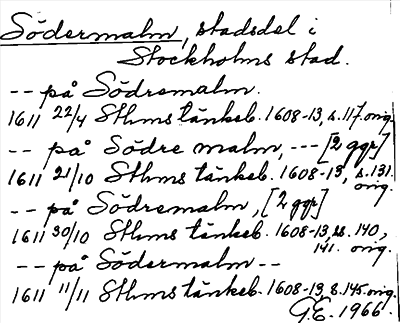 Södermalm, stadsdel i
Stockholms stad.
-- på Södremalm.
1611 22/4 Sthms tänkeb. 1608-13, s. 117. orig.
-- på Södre malm, --- [2 ggr]
1611 21/10 Sthms tänkeb. 1608-13, s. 131.
orig.
-- på Södremalm, [2 ggr]
1611 30/10 Sthms tänkeb. 1608-13, ss. 140,
141. orig.
-- på Södermalm --
1611 11/11 Sthms tänkeb. 1608-13, s. 145 orig.
G.E. 1966.